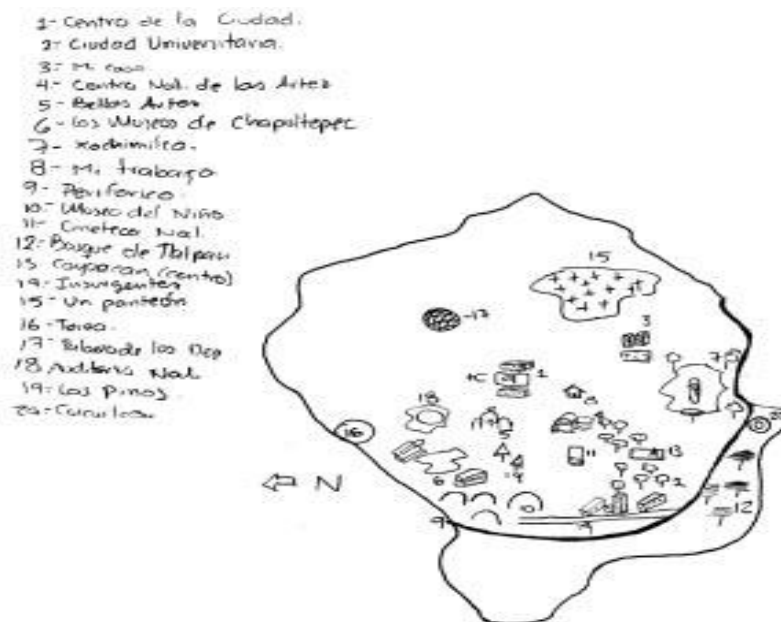 1- Centro de la Ciudad.
2- Ciudad Universitaria.
3- Mi casa
4- Centro Nal. de las Artes
5- Bellas Artes
6- Los Museos de Chapultepec
7- Xochimilco.
8- Mi trabajo
9- Periferico.
10- Museo del Niño
11- Cineteca Nal.
12- Bosque de Tlalpan
13 Coyoacan (centro)
14- Insurgentes
15- Un panteón
16- Toreo.
17 de los
18 Auditorio Nal.
19- Los Pinos.
20- Cuicuilco
15
17
3
7
1
18
8
5
16
11
13
6
N
10
2
12
9